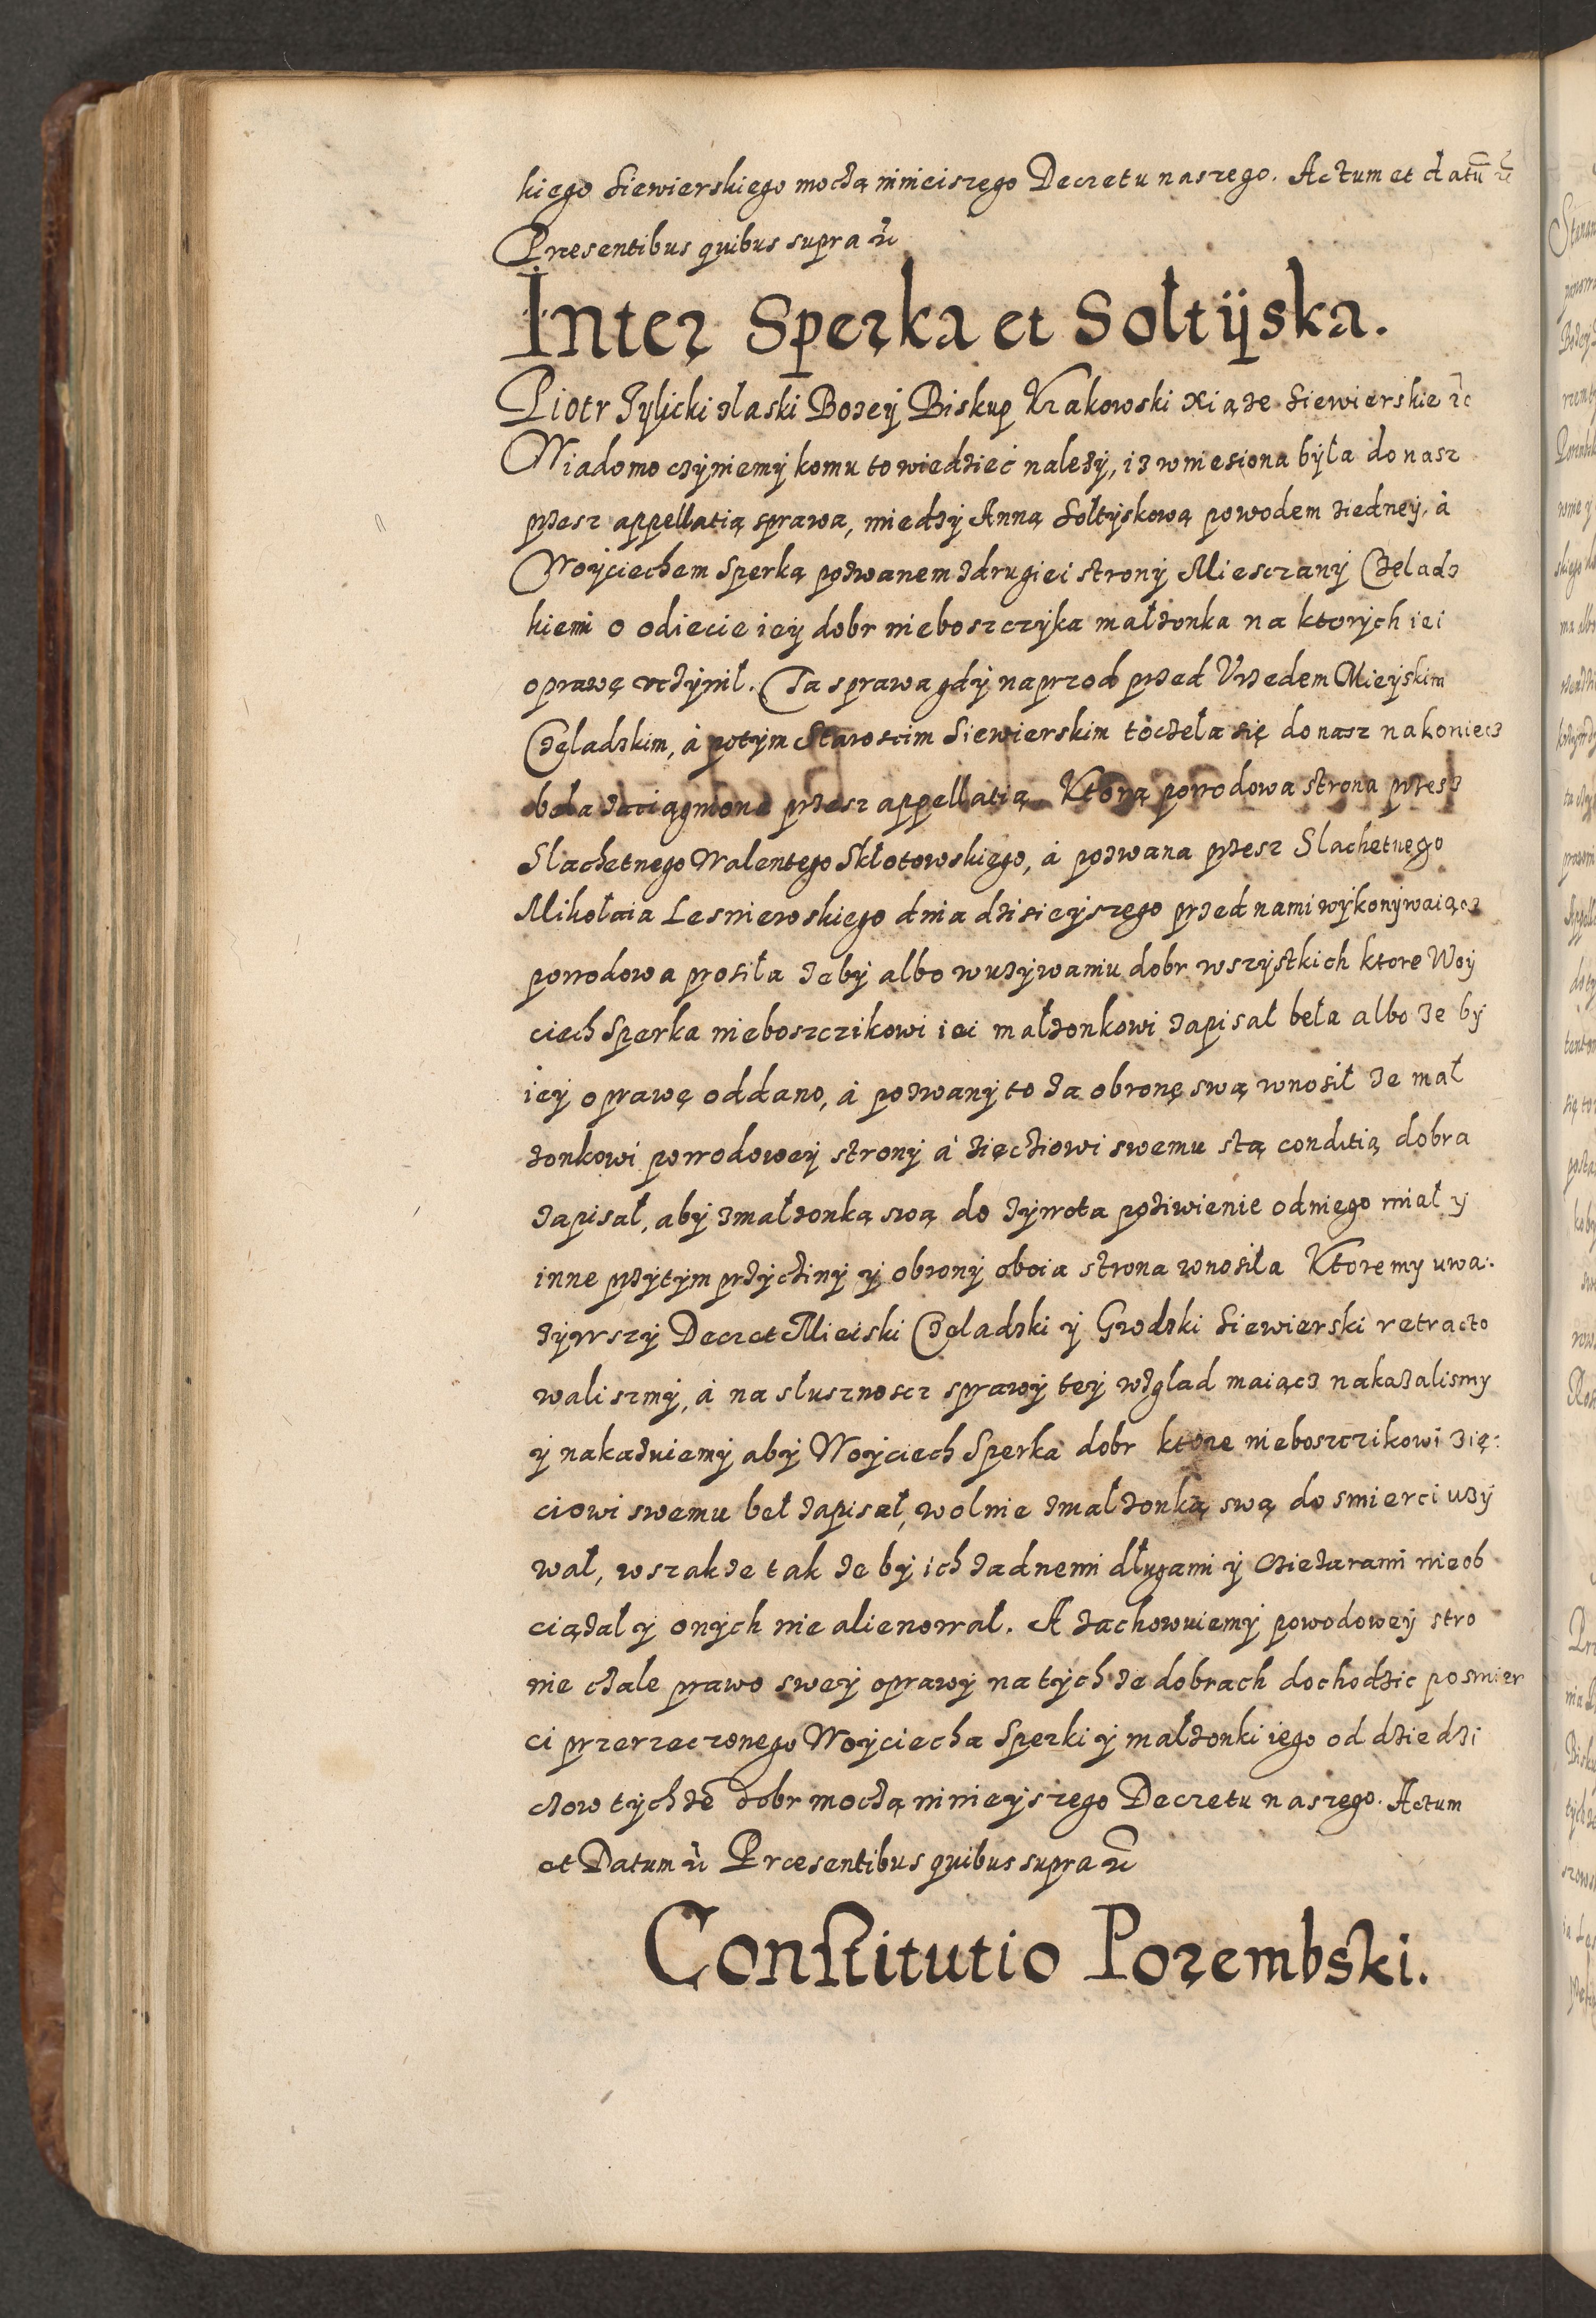 kiego Siewierskiego moczą ninieiszego Decretu naszego. Actum et datū ꝛc
Præsentibus quibus supra ꝛc
Inter Sperka et Sołtÿska.
Piotr Tylicki zlaski Bozeÿ Biskup Krakowski Xiąze Siewierskie ꝛc
Wiadomo czÿniemÿ komu to wiedzieć nalezÿ, iz wniesiona bÿła do nasz
przesz appellatią sprawa, miedzÿ Anną Sołtÿskową powodem ziedneÿ, à
Woÿciechem Sperką pozwanem zdrugiei stronÿ Miesczanÿ Czeladz
kiemi o odiecie ieÿ dobr nieboszczÿka małzonka na ktorÿch iei
oprawę vczÿnił. Ta sprawa gdÿ naprzod przed Vrzedem Mieÿskim
Czeladzkim, à potÿm Starosczim Siewierskim toczeła się do nasz nakoniecz
beła zaciągniona przesz appellatią. Ktorą powodowa strona przesz
Slachetnego Walentego Skłotowskiego, à pozwana przesz Slachetnego
Mikołaia Lesniewskiego dnia dzisieÿszego przed nami wÿkonÿwaiącz
powodowa prosiła zebÿ albo wuzÿwaniu dobr wszÿstkich ktore Woÿ
ciech Sperka nieboszczikowi iei małzonkowi zapisał beła albo ze bÿ
ieÿ oprawę oddano, à pozwanÿ to za obronę swą wnosił ze mał
zonkowi powodoweÿ stronÿ à zięcziowi swemu stą conditią dobra
zapisał, abÿ zmałzonką swą do zÿwota poziwienie odniego miał y
inne przÿtÿm przÿczinÿ ÿ obronÿ oboia strona wnosiła Ktore my uwa:
zÿwszÿ Decret Mieiski Czeladzki ÿ Grodzki Siewierski retracto
waliszmÿ, à na słusznoscz sprawÿ teÿ wzglad maiącz nakazalismy
ÿ nakazuiemÿ abÿ Woÿciech Sperka dobr ktore nieboszczikowi zię:
ciowi swemu beł zapisał, wolnie zmałzonką swą do smierci uzÿ
wał, wszakze tak ze bÿ ich zadnemi długami ÿ cziezarami nieob
ciązał ÿ onÿch nie alienował. A zachowuiemÿ powodoweÿ stro
nie czale prawo sweÿ oprawÿ na tÿch ze dobrach dochodzic posmier
ci przerzeczonego Woÿciecha Sperki ÿ małzonki iego od dziedzi
czow tÿch ze dobr moczą ninieÿszego Decretu naszego. Actum
et Datum ꝛc Præsentibus quibus supra ꝛc
Constitutio Porembski.